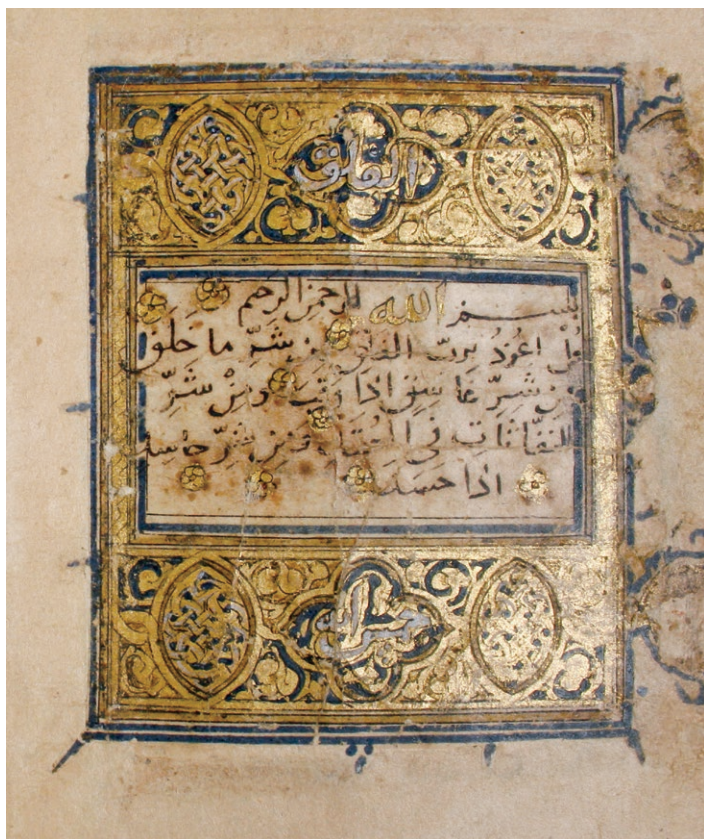 الفلق
بسم الله الرحمن الرحيم
قُلْ اعُوذُ بِرَبِّ الفلق مِن شَرِّ ما خَلَقَ
ومِن شَرِّ غاسِقٍ اذا وَقَبَ ومِنْ شَرِّ
النفّاثاتِ فى العُقَدِ ومِن شَرِّ حاسد
اذا حَسَدَ
خمس